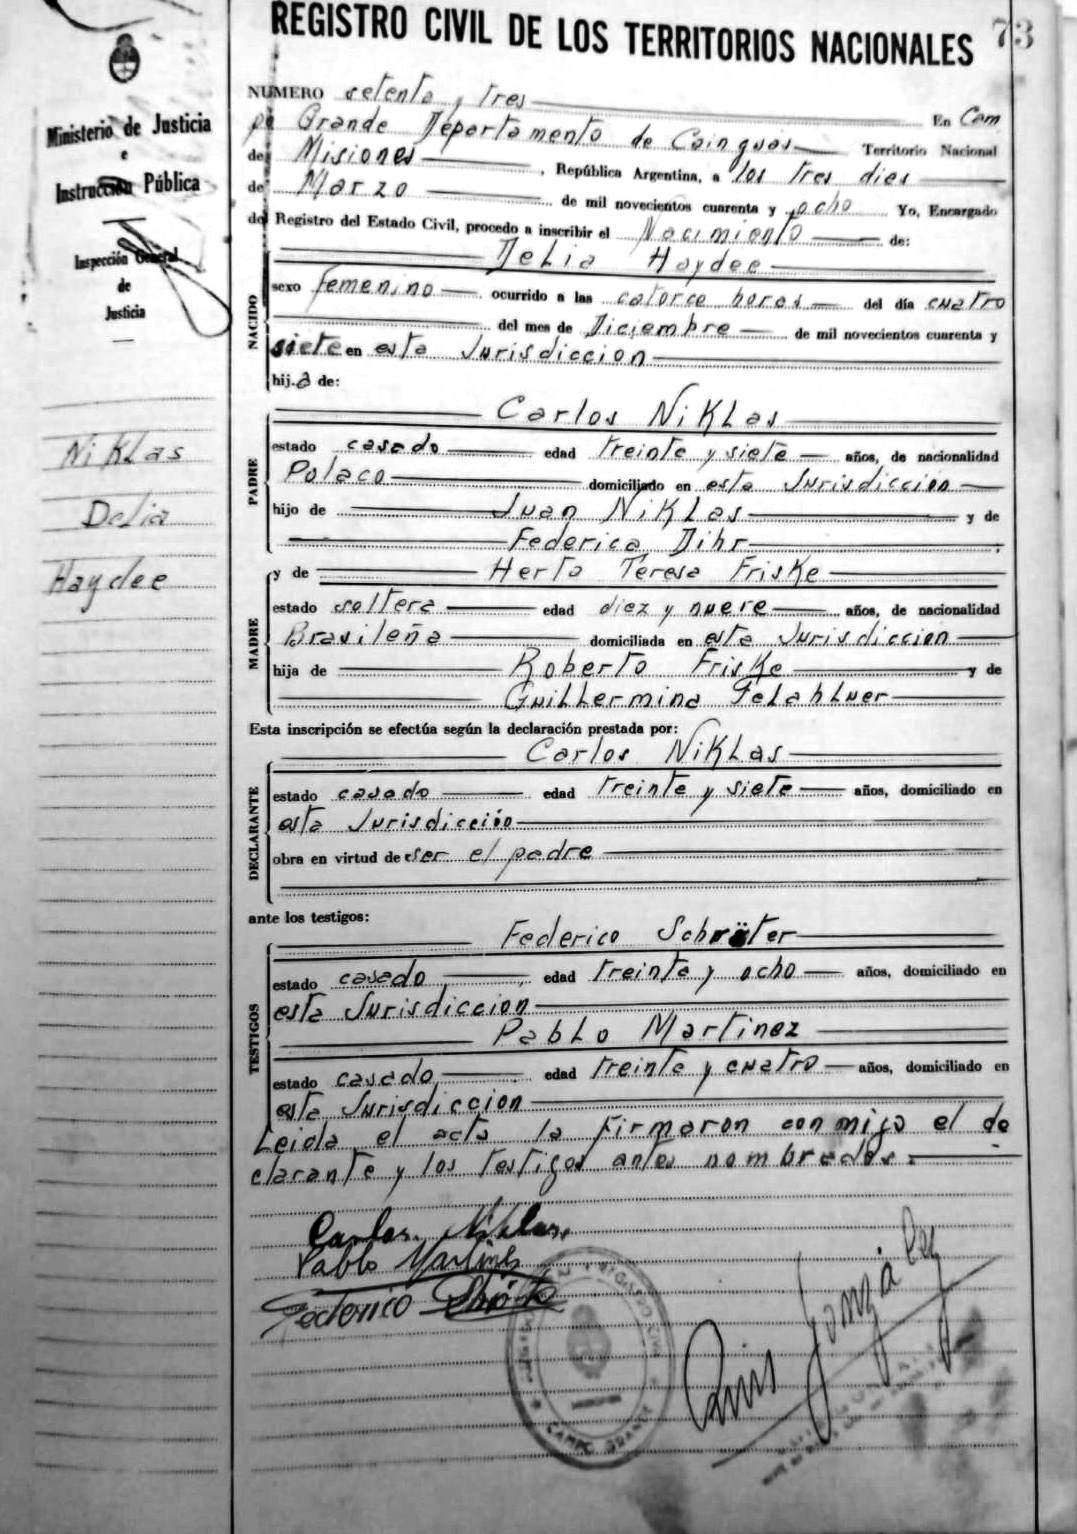 REGISTRO CIVIL DE LOS TERRITORIOS NACIONALES
73
Ministerio de Justicia
e
Instrucción Pública
Inspección General
de
Justicia
Niklas
Delia
Haydee
NUMERO setenta y tres En Cam
po Grande Departamento de Cainguas Territorio Nacional
de Misiones, República Argentina, a los tres dies
de Marzo de mil novecientos cuarenta y ocho Yo, Encargado
del Registro del Estado Civil, procedo a inscribir el Nacimiento de:
Delia Haydee
NACIDO
sexo Femenino, ocurrido a las catorce horas del día cuatro
del mes de Diciembre de mil novecientos cuarenta y
siete en esta Jurisdiccion
hija de:
PADRE
Carlos Niklas
estado casado edad treinta y siete años, de nacionalidad
Polaco domiciliado en esta Jurisdiccion
hijo de Juan Niklas y de
Federica Dihr
MADRE
y de Herta Teresa Friske
estado soltera edad diez y nueve años, de nacionalidad
Brasileña domiciliada en esta Jurisdiccion
hija de Roberto Friske y de
Guillermina
Esta inscripción se efectúa según la declaración prestada por:
DECLARANTE
Carlos Niklas
estado casado edad treinta y siete años, domiciliado en
esta Jurisdicción
obra en virtud de ser el padre
ante los testigos:
TESTIGOS
Federico Schröter
estado casado edad treinta y ocho años, domiciliado en
esta Jurisdiccion
Pablo Martinez
estado casado edad treinta y cuatro años, domiciliado en
esta Jurisdiccion
Leida el acta la firmaron conmigo el de
clarante y los testigos antes nombrados.
Carlos Niklas
Pablo Martinez
Federico Schröter
Luis González
CAMPO GRANDE